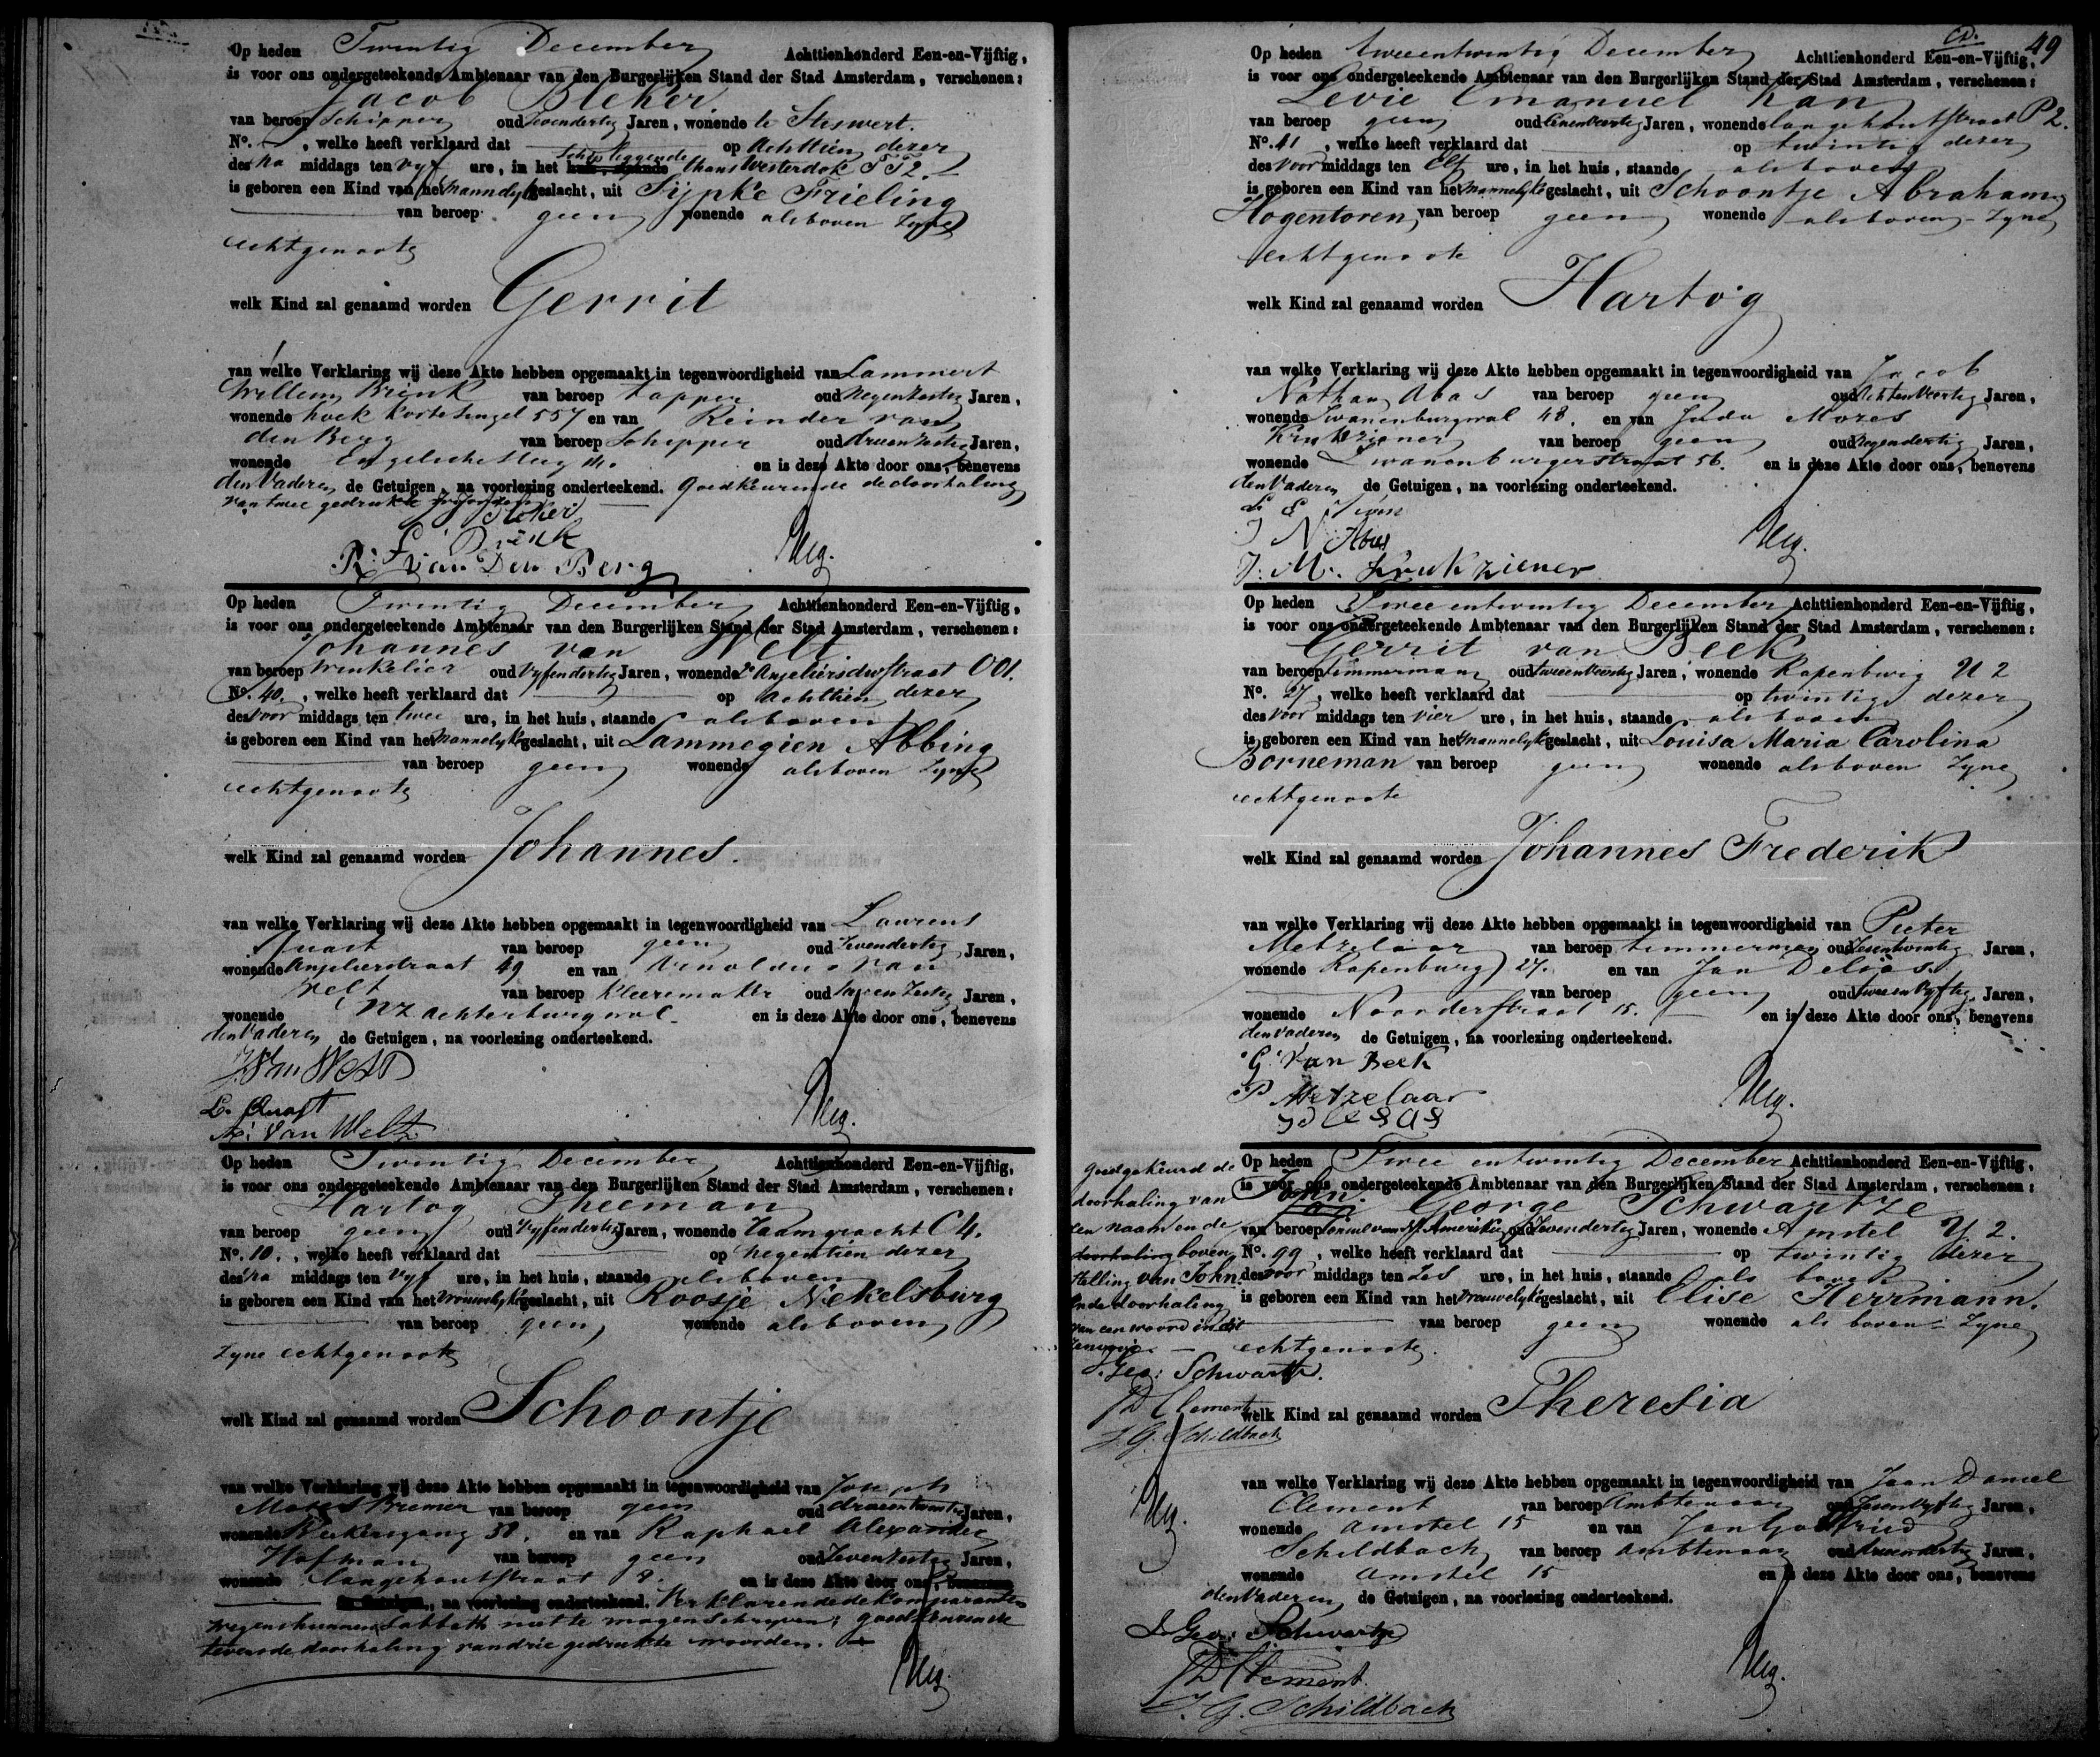 Op heden Twintig December Achttienhonderd Een-en-Vijftig,
is voor ons ondergeteekende Ambtenaar van den Burgerlijken Stand der Stad Amsterdam, verschenen:
Jacob Bleker.
van beroep Schipper oud Zevendertig Jaren, wonende te Steswert.
No. —, welke heeft verklaard dat op Achttien dezer
des na middags ten vyf ure, in het huis, staande schip liggende thans Westerdok TT2.
is geboren een Kind van het Mannelyk geslacht, uit Sijpke Frieling
van beroep geen wonende alsboven Zyne
echtgenoote
welk Kind zal genaamd worden Gerrit
van welke Verklaring wij deze Akte hebben opgemaakt in tegenwoordigheid van Lammert
Willem Brink van beroep tapper oud Negenzestig Jaren,
wonende hoek Korte Singel 557 en van Reinder van
den Berg van beroep Schipper oud drieenzestig Jaren,
wonende Engelsche Steeg 14. en is deze Akte door ons, benevens
den Vader en de Getuigen, na voorlezing onderteekend. Goedkeurende de doorhaling
van twee gedrukte
Bleker
L Brink
R: F van Den Berg
Op heden Twintig December Achttienhonderd Een-en-Vijftig,
is voor ons ondergeteekende Ambtenaar van den Burgerlijken Stand der Stad Amsterdam, verschenen:
Johannes van Welt
van beroep Winkelier oud Vyfendertig Jaren, wonende Anjeliersdwstraat OO1.
No. 40., welke heeft verklaard dat op Achttien dezer
des Voor middags ten twee ure, in het huis, staande alsboven
is geboren een Kind van het Mannelyk geslacht, uit Lammegien Abbing
van beroep geen wonende alsboven Zyne
echtgenoote
welk Kind zal genaamd worden Johannes.
van welke Verklaring wij deze Akte hebben opgemaakt in tegenwoordigheid van Laurens
Quast van beroep geen oud Zevendertig Jaren,
wonende Anjelierstraat 49 en van Arnoldus van
Welt van beroep Kleeremaker oud Jaren,
wonende NZ Achterburgwal en is deze Akte door ons, benevens
den Vader en de Getuigen, na voorlezing onderteekend.
J. Van Welt
L. Quast
A: Van Welt
Op heden Twintig December Achttienhonderd Een-en-Vijftig,
is voor ons ondergeteekende Ambtenaar van den Burgerlijken Stand der Stad Amsterdam, verschenen:
Hartog Theeman
van beroep geen oud Vyfendertig Jaren, wonende Raamgracht C4.
No. 10., welke heeft verklaard dat op Negentien dezer
des na middags ten Vyf ure, in het huis, staande alsboven
is geboren een Kind van het Vrouwelyk geslacht, uit Roosje Nekelsburg
van beroep geen wonende alsboven
Zyne echtgenoote
welk Kind zal genaamd worden Schoontje
van welke Verklaring wij deze Akte hebben opgemaakt in tegenwoordigheid van Joseph
Mozes Bremer van beroep geen oud drieentwintig Jaren,
wonende Bakkersgang 38, en van Raphael Alexander
Hofman van beroep geen oud Zevenzestig Jaren,
wonende Langehoutstraat 8. en is deze Akte door ons, benevens
de Getuigen, na voorlezing onderteekend. Verklarende de Komparanten
wegens hunnen Sabbath niet te mogen schryven; goedkeurende
tevens de doorhaling van drie gedrukte woorden.
49
Op heden tweeentwintig December Achttienhonderd Een-en-Vijftig,
is voor ons ondergeteekende Ambtenaar van den Burgerlijken Stand der Stad Amsterdam, verschenen:
Levie Emanuel Kan
van beroep geen oud Eenenveertig Jaren, wonende Langehoutstraat P2.
No. 41, welke heeft verklaard dat op twintig dezer
des Voor middags ten Elf ure, in het huis, staande alsboven
is geboren een Kind van het Mannelyk geslacht, uit Schoontje Abraham
Hogentoren, van beroep geen wonende alsboven - Zyne
echtgenoote
welk Kind zal genaamd worden Hartog
van welke Verklaring wij deze Akte hebben opgemaakt in tegenwoordigheid van Jacob
Nathan Abas van beroep geen oud Achtenveertig Jaren,
wonende Zwanenburgwal 48. en van Juda Mozes
Krukziener van beroep geen oud Negendertig Jaren,
wonende Zwanenburgerstraat 56. en is deze Akte door ons, benevens
den Vader en de Getuigen, na voorlezing onderteekend.
L E
J N Abas
J. M. Krukziener
Op heden Tweeentwintig December Achttienhonderd Een-en-Vijftig,
is voor ons ondergeteekende Ambtenaar van den Burgerlijken Stand der Stad Amsterdam, verschenen:
Gerrit van Beek
van beroep timmerman oud tweeenveertig Jaren, wonende Rapenburg U 2
No. 27, welke heeft verklaard dat op twintig dezer
des Voor middags ten vier ure, in het huis, staande alsboven
is geboren een Kind van het Mannelyk geslacht, uit Louisa Maria Carolina
Borneman van beroep geen wonende alsboven Zyne
echtgenoote
welk Kind zal genaamd worden Johannes Frederik
van welke Verklaring wij deze Akte hebben opgemaakt in tegenwoordigheid van Pieter
Metzelaar van beroep timmerman oud Zesentwintig Jaren,
wonende Rapenburg 27. en van Jan Delsas.
van beroep geen oud tweeenvyftig Jaren,
wonende Noorderstraat 15. en is deze Akte door ons, benevens
den Vader en de Getuigen, na voorlezing onderteekend.
G. Van Beek
P Metzelaar
Op heden Twee entwintig December Achttienhonderd Een-en-Vijftig,
is voor ons ondergeteekende Ambtenaar van den Burgerlijken Stand der Stad Amsterdam, verschenen:
John. Jan George Schwartze
van beroep Consul van N. Amerika, oud Zevendertig Jaren, wonende Amstel Y. 2.
No. 99, welke heeft verklaard dat op twintig dezer
des Voor middags ten Zes ure, in het huis, staande als boven
is geboren een Kind van het Vrouwelyk geslacht, uit Elise Herrmann.
van beroep geen wonende als boven - Zyne
echtgenoote.
welk Kind zal genaamd worden Theresia
van welke Verklaring wij deze Akte hebben opgemaakt in tegenwoordigheid van Jean Daniel
Clement van beroep Ambtenaar oud Zesenvyftig Jaren,
wonende Amstel 15 en van Jan Gottfried
Schildbach van beroep Ambtenaar oud drieendertig Jaren,
wonende Amstel 15 en is deze Akte door ons, benevens
den Vader en de Getuigen, na voorlezing onderteekend.
J. Geo: Schwartze
JD Clement.
J. G. Schildbach
Goedgekeurd de
doorhaling van
een naam en de
doorhaling boven
stelling van John.
en de doorhaling
van een woord in dit
J. Geo: Schwartze.
JD Clement
J. G. Schildbach